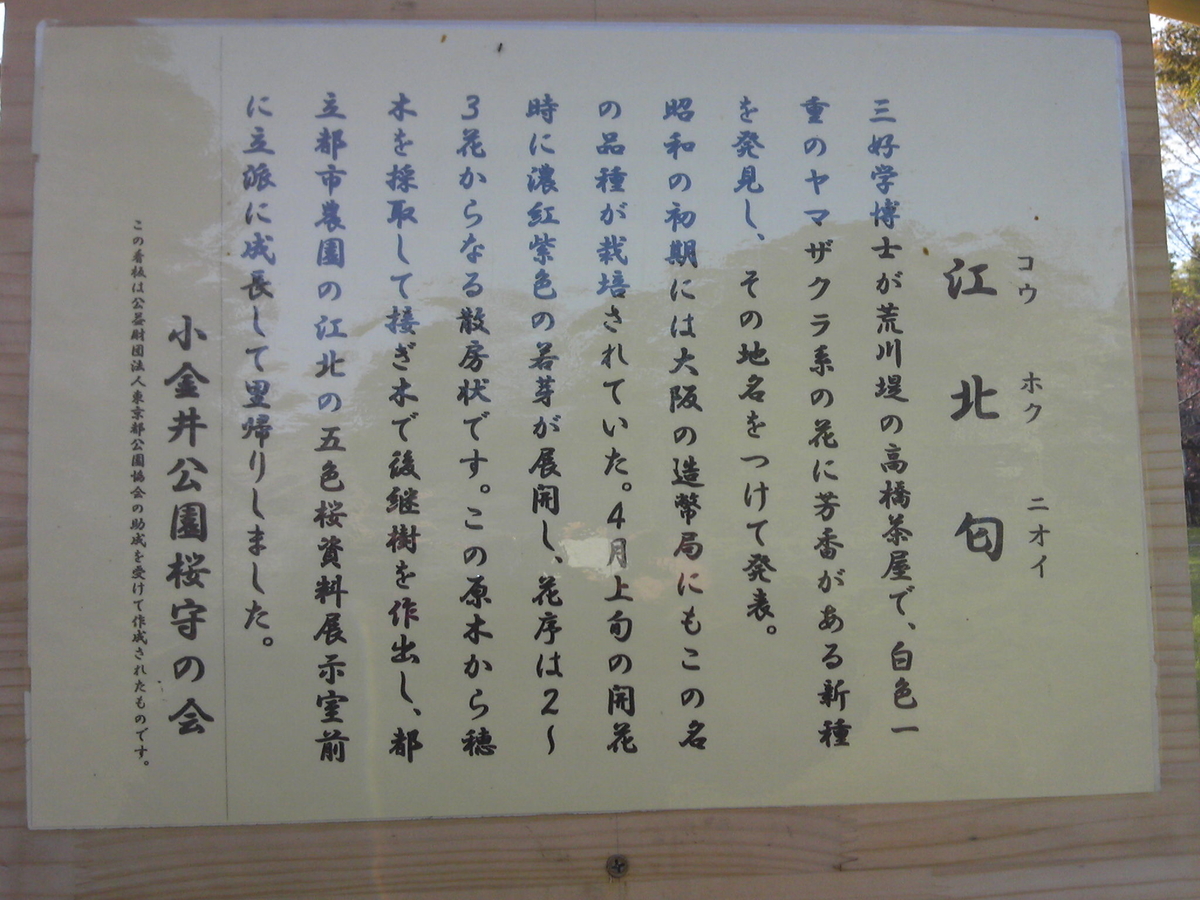 コウ ホク ニオイ
江北匂
三好学博士が荒川堤の高橋茶屋で、白色一
重のヤマザクラ系の花に芳香がある新種
を発見し、その地名をつけて発表。
昭和の初期には大阪の造幣局にもこの名
の品種が栽培されていた。4月上旬の開花
時に濃紅紫色の若芽が展開し、花序は2〜
3花からなる散房状です。この原木から穂
木を採取して接ぎ木で後継樹を作出し、都
立都市農園の江北の五色桜資料展示室前
に立派に成長して里帰りしました。
小金井公園桜守の会
この看板は公益財団法人東京都公園協会の助成を受けて作成されたものです。